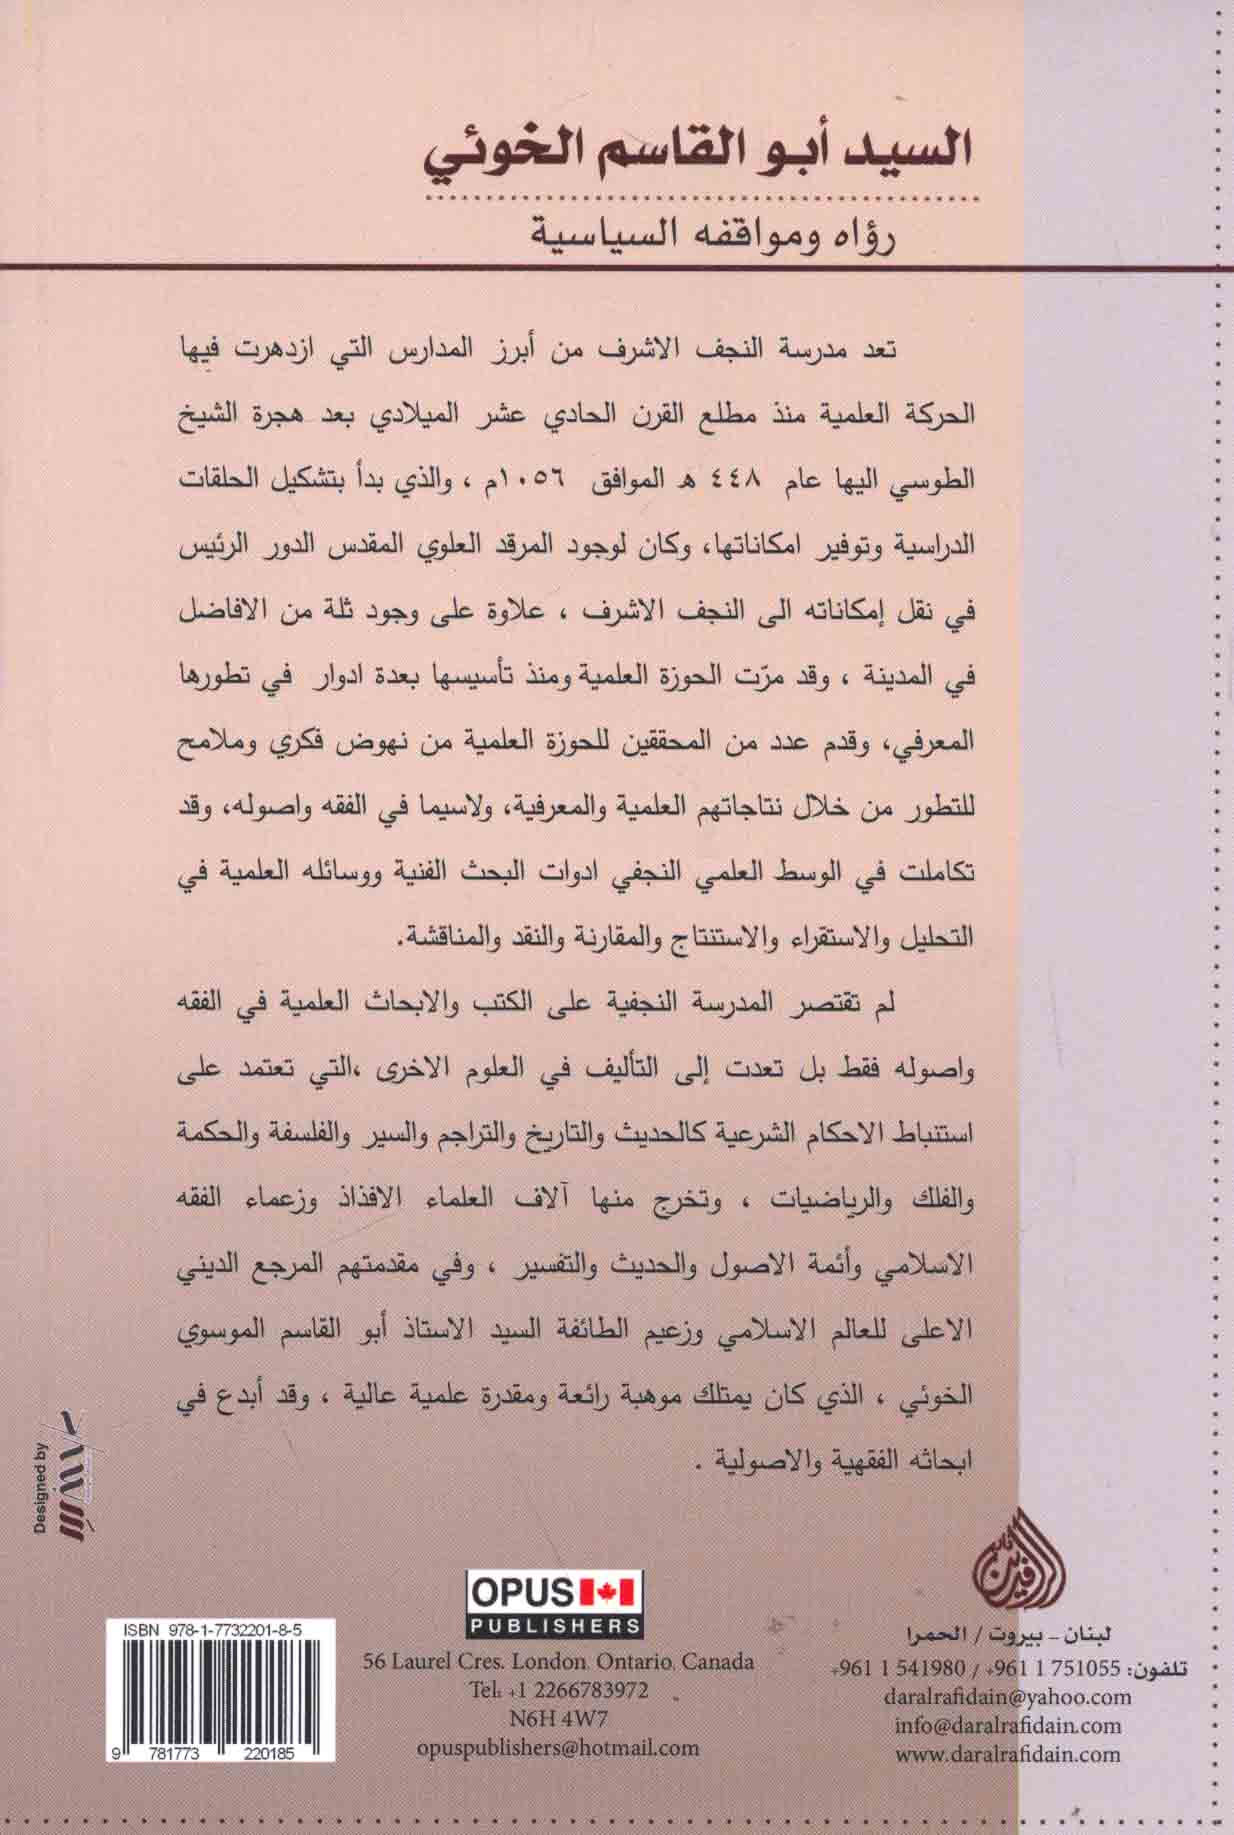 السيد أبو القاسم الخوئي
رؤاه ومواقفه السياسية
تعد مدرسة النجف الاشرف من أبرز المدارس التي ازدهرت فيها
الحركة العلمية منذ مطلع القرن الحادي عشر الميلادي بعد هجرة الشيخ
الطوسي اليها عام ٤٤٨ هـ الموافق ١٠٥٦م ، والذي بدأ بتشكيل الحلقات
الدراسية وتوفير امكاناتها، وكان لوجود المرقد العلوي المقدس الدور الرئيس
في نقل إمكاناته الى النجف الاشرف ، علاوة على وجود ثلة من الافاضل
في المدينة ، وقد مرّت الحوزة العلمية ومنذ تأسيسها بعدة ادوار في تطورها
المعرفي، وقدم عدد من المحققين للحوزة العلمية من نهوض فكري وملامح
للتطور من خلال نتاجاتهم العلمية والمعرفية، ولاسيما في الفقه واصوله، وقد
تكاملت في الوسط العلمي النجفي ادوات البحث الفنية ووسائله العلمية في
التحليل والاستقراء والاستنتاج والمقارنة والنقد والمناقشة.
لم تقتصر المدرسة النجفية على الكتب والابحاث العلمية في الفقه
واصوله فقط بل تعدت إلى التأليف في العلوم الاخرى ،التي تعتمد على
استنباط الاحكام الشرعية كالحديث والتاريخ والتراجم والسير والفلسفة والحكمة
والفلك والرياضيات ، وتخرج منها آلاف العلماء الافذاذ وزعماء الفقه
الاسلامي وأئمة الاصول والحديث والتفسير ، وفي مقدمتهم المرجع الديني
الاعلى للعالم الاسلامي وزعيم الطائفة السيد الاستاذ أبو القاسم الموسوي
الخوئي ، الذي كان يمتلك موهبة رائعة ومقدرة علمية عالية ، وقد أبدع في
ابحاثه الفقهية والاصولية .
Designed by
الرافدين
لبنان - بيروت / الحمرا
تلفون: +961 1 541980 / +961 1 751055
daralrafidain@yahoo.com
info@daralrafidain.com
www.daralrafidain.com
OPUS
PUBLISHERS
56 Laurel Cres. London, Ontario, Canada
Tel: +1 2266783972
N6H 4W7
opuspublishers@hotmail.com
ISBN 978-1-7732201-8-5
9 781773 220185